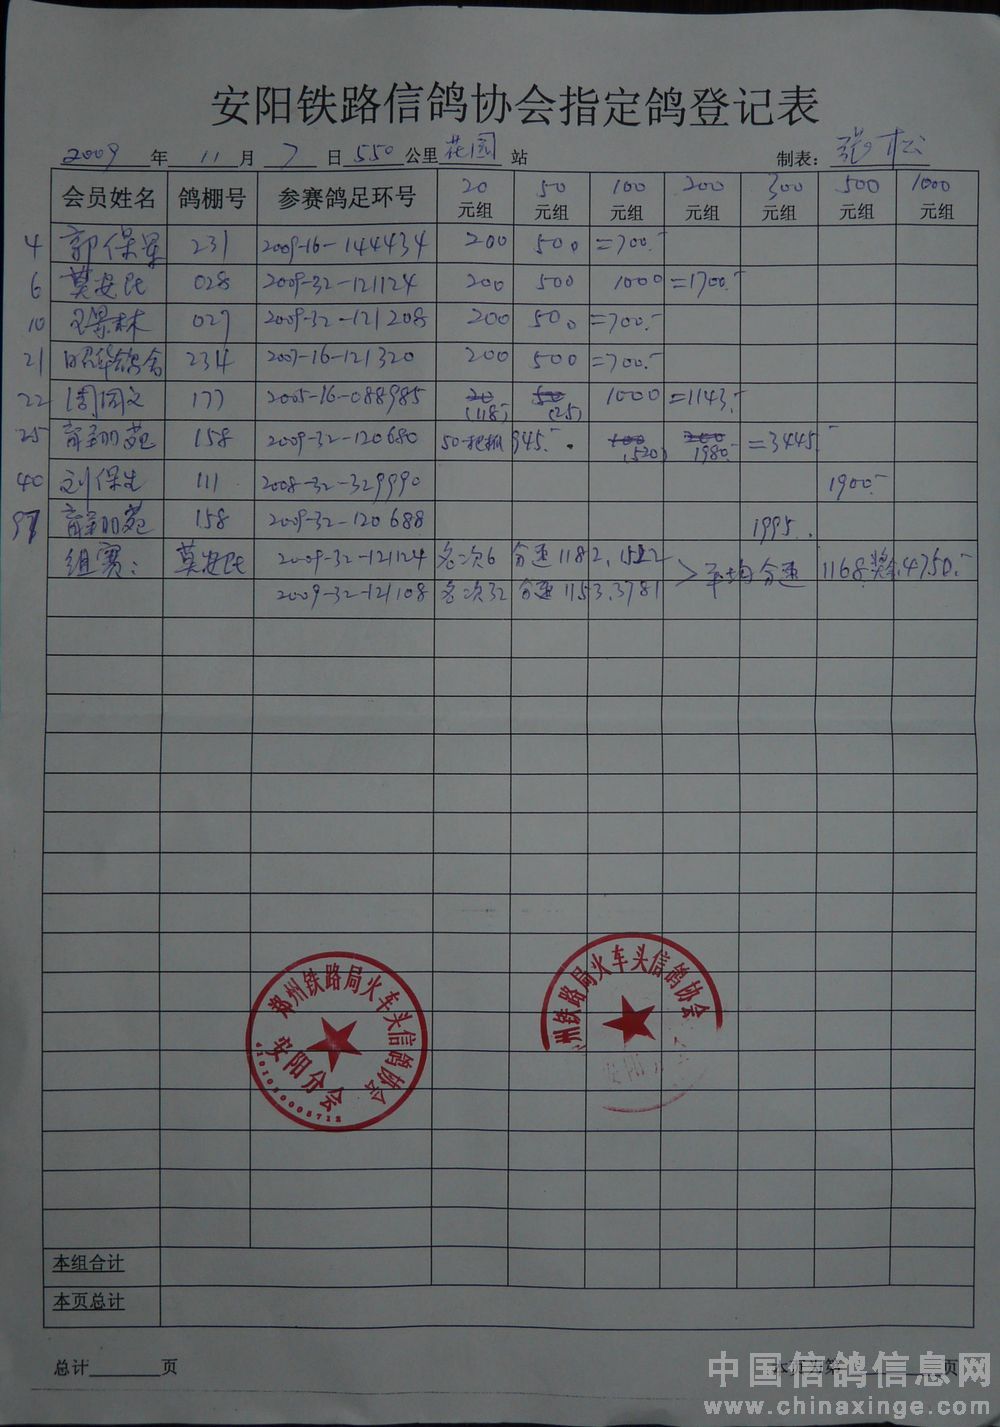 安阳铁路信鸽协会指定鸽登记表
2009 年 11 月 7 日 550 公里 花园 站 制表: 张松
会员姓名 鸽棚号 参赛鸽足环号 20元组 50元组 100元组 200元组 300元组 500元组 1000元组
4 郭保军 231 2009-16-144434 200 500 =700.-
6 莫安民 028 2009-32-121124 200 500 1000 =1700.-
10 王景林 027 2009-32-121208 200 500 =700.-
21 昭华鸽舍 234 2007-16-121320 200 500 =700.-
22 周同文 177 2005-16-088985 20 (118) 50 (25) 1000 =1143.-
25 158 2009-32-120680 50一把抓 945.- 100 (520) 200 1980.- =3445.-
40 刘保生 111 2008-32-329990 1900.-
97 158 2009-32-120688 1995.
组赛: 莫安民 2009-32-121124 名次6 分速1182.1522 > 平均分速 1168. 奖金4750.-
2009-32-121108 名次32 分速1153.3781
郑州铁路局火车头信鸽协会
安阳分会
州铁路局火车头信鸽协会
安阳分会
本组合计
本页总计
总计 页
页
中国信鸽信息网
www.chinaxinge.com